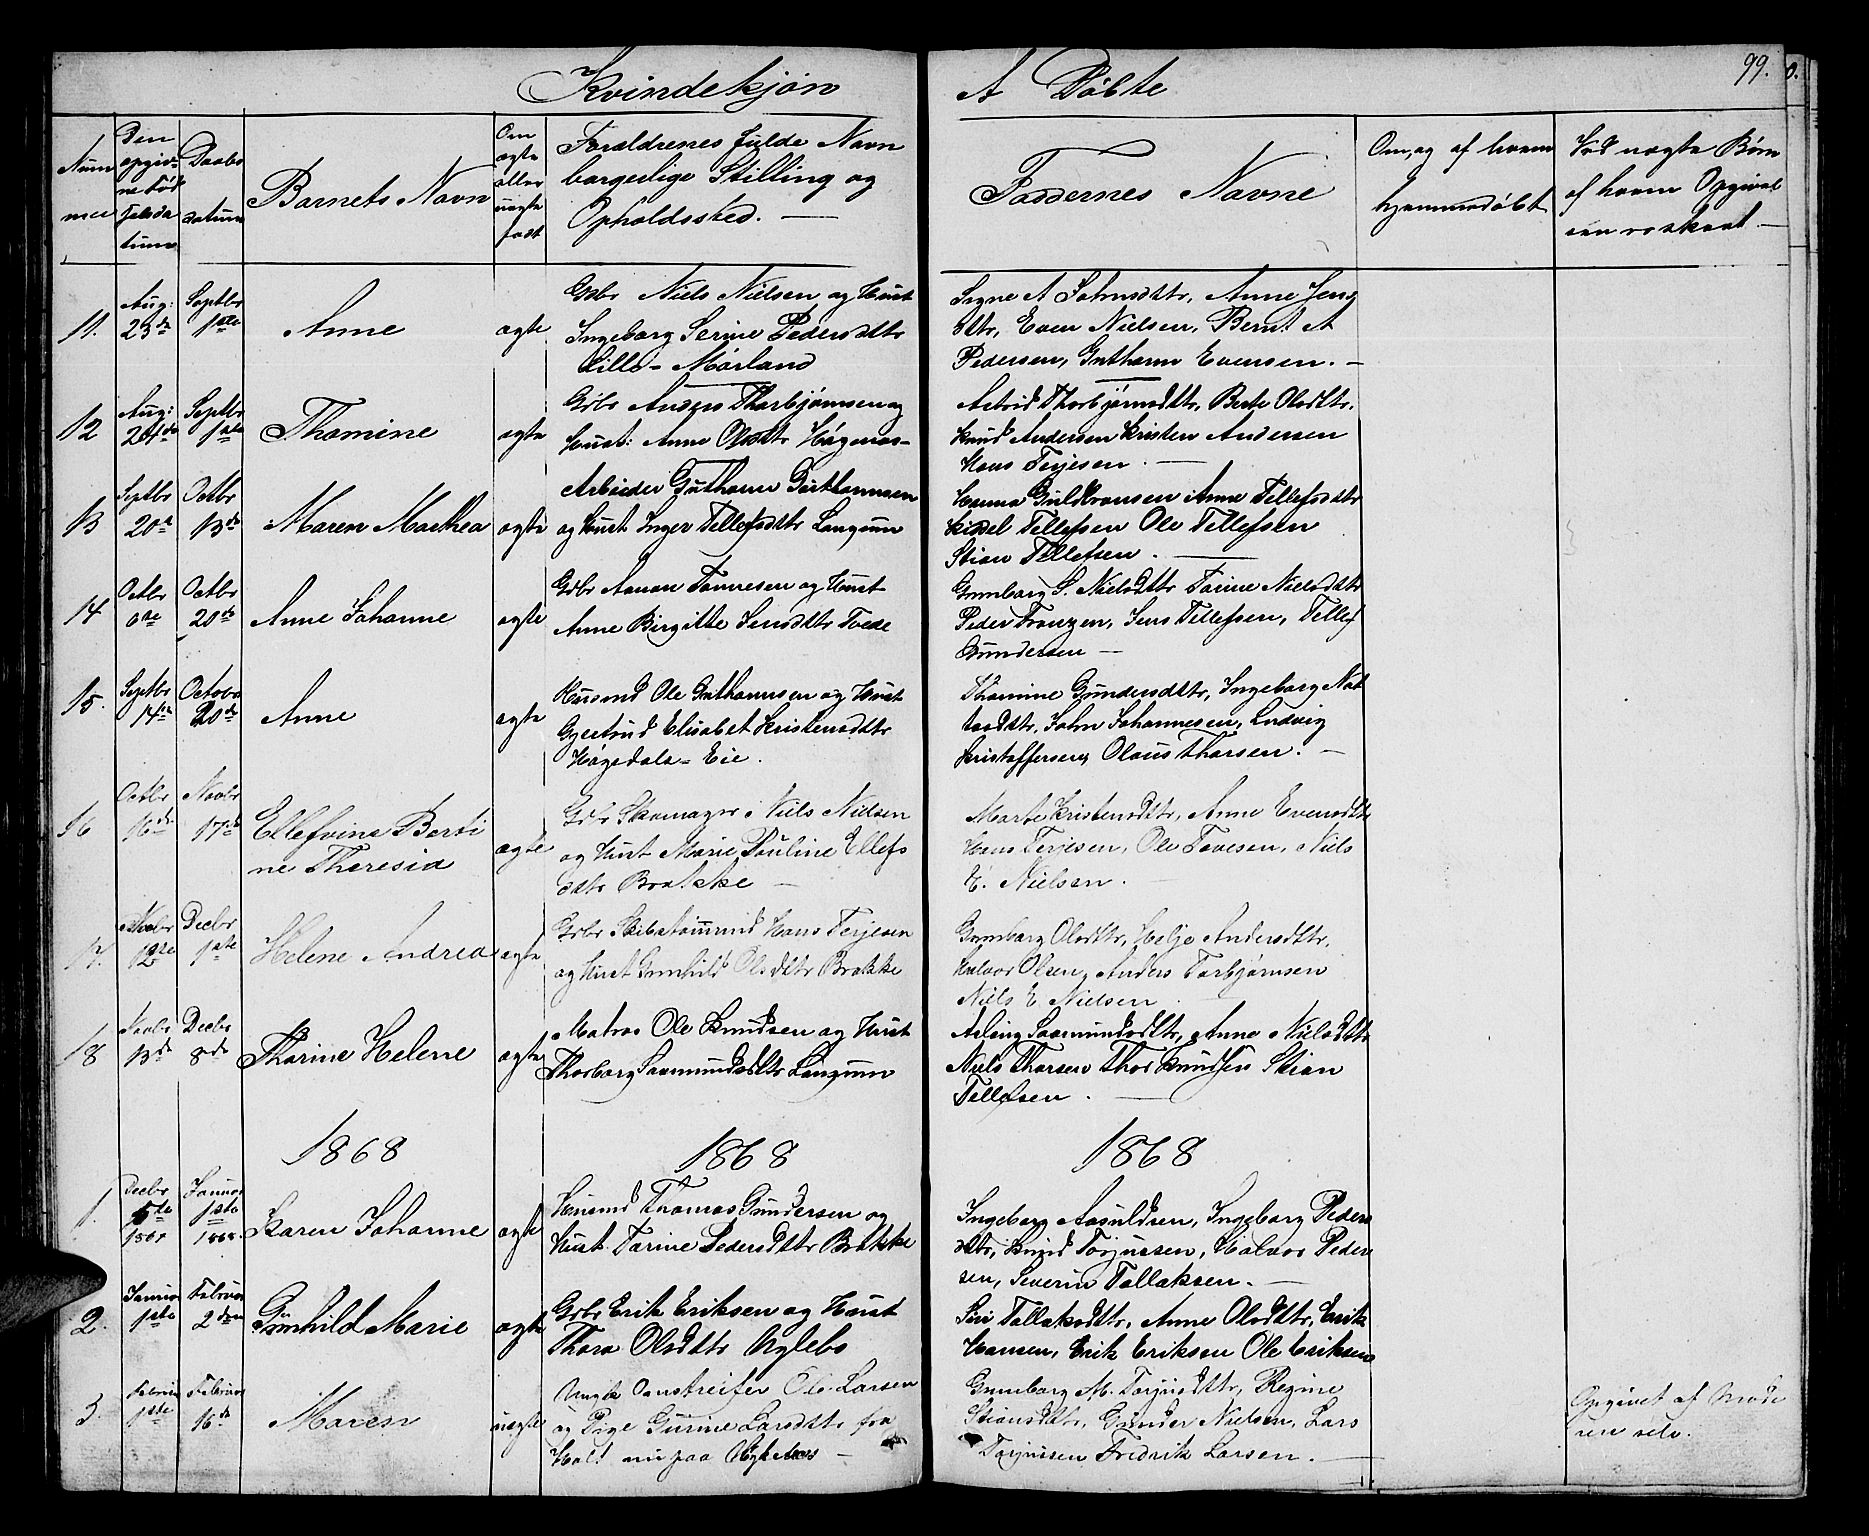 Kvindekjøn
A Døbte
99.
Num
mer
Den
opgiv-
ne Fød
selsda
tum
Daabs
datum
Barnets Navn
Om
ægte
eller
uægte
født
Forældrenes fulde Navn
borgerlige Stilling og
Opholdssted. —
Faddernes Navne
Om, og af hvem
hjemmedøbt
Ved uægte Børn
af hvem Opgivel
sen er skeet —
11. Aug: 23de Septbr 1ste Anne ægte
Gdbr Niels Nielsen og Hust
Ingeborg Serine Pedersdttr
Lille-Mørland
Signe A Johnsdttr, Anne Jens
dttr, Even Nielsen, Bernt A
Pedersen, Guthorm Evensen. —
12 Aug: Septbr 1ste Thomine ægte
Gdbr Anders Thorbjørnsen og
Hust: Anne Olsdttr
Astrid Thorbjørnsdttr, Berte Olsdttr.
Knud Andersen Kristen Andersen
Hans Terjesen. —
13 Septbr 20de Octbr 13de Maren Marthea ægte
Arbeider Guthorm Guthormsen
og Hust Inger Tellefsdttr Langum
Hanna Guldbransen Anne Tellefsdttr
Kiddel Tellefsen Ole Tellefsen
Stian Tellefsen. —
14 Octbr 6te Octbr 20de Anne Johanne ægte
Gdbr Aanon Tønnesen og Hust
Anne Birgitte Jensdttr Tvede
Gunnborg S. Nielsdttr Torine Nielsdttr
Peder Frantzen, Jens Tellefsen, Tellef
Gundersen —
15. Septbr 14de Octobr 20de Anne ægte
Husmd Ole Guthormsen og Hust
Gjertrud Elisabet Kristensdttr
Høgedals-Eie.
Thomine Gundersdttr, Ingeborg Not
tosdttr, John Johannesen, Ludvig
Kristoffersen, Olaus Thorsen. —
16 Octbr 16de Novbr 17de Ellefvine Berti
ne Theresia ægte
Gdbr Skomager Niels Nielsen
og Hust Marie Pauline Ellefs
dttr Brække —
Marte Kristensdttr, Anne Evensdttr
Hans Terjesen, Ole Tovesen, Niels
E. Nielsen.
17. Novbr 12te Decbr 1ste Helene Andrea ægte
Gdbr Skibstømmd Hans Terjesen
og Hust Gunhild Olsdttr Brække
Gunnborg Olsdttr, Helje Andersdttr,
Halvor Olsen, Anders Torbjørnsen
Niels E Nielsen
18 Novbr 13de Decbr 8de Thorine Helene ægte
Matros Ole Knudsen og Hust
Thorborg Saamundsdttr Langum
Aslaug Saamundsdttr, Anne Nielsdttr
Niels Thorsen Thor Knudsen Stian
Tellefsen. —
1868
1868
1868
1. Decbr 5te Januar 1ste 1868. Karen Johanne ægte
Husmd Thomas Gundersen og
Hust. Torine Pedersdttr Brække
Ingeborg Aasuldsen, Ingeborg Peders
dttr, Knud Torjussen, Halvor Peder
sen, Severin Tallaksen. —
2. Januar 1ste Februar 2den Gunhild Marie ægte
Gdbr Erik Eriksen og Hust
Thora Olsdttr Uglebo
Siri Tallaksdttr, Anne Olsdttr, Erik
Hansen, Erik Eriksen Ole Eriksen
3. Februar 1ste Februar 16de Maren uægte
Ungk Omstreifer Ole Larsen
og Pige Gurine Larsdttr fra
Holt nu paa
Gunnborg M. Torjusdttr, Regine
Stiansdttr, Gunder Nielsen, Lars
Torjussen Fredrik Larsen. —
Opgivet af Mode
ren selv.